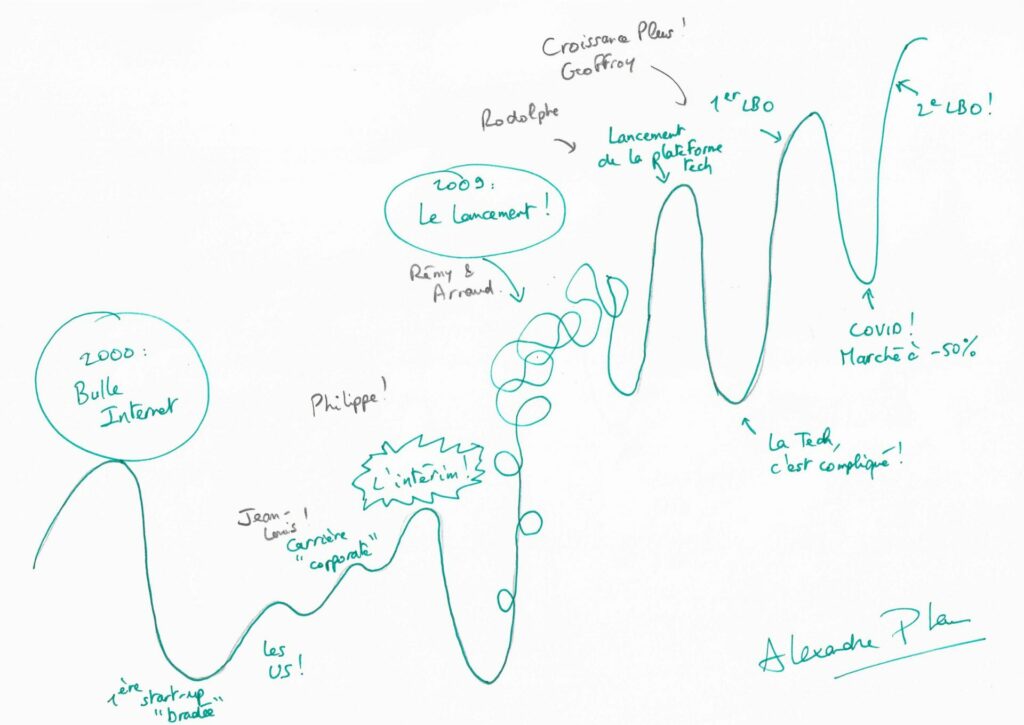 2000:
Bulle
Internet
1ère start-up
"bradée"
les
US!
Jean-
Louis!
Carrière
"corporate"
Philippe!
L'intérim!
2009:
Le Lancement!
Rémy &
Arnaud.
Rodolphe
Lancement
de la plateforme
tech
Croissance Plus!
Geoffroy
La Tech,
c'est compliqué!
1er LBO
COVID!
Marché à -50%
2e LBO!
Alexandre